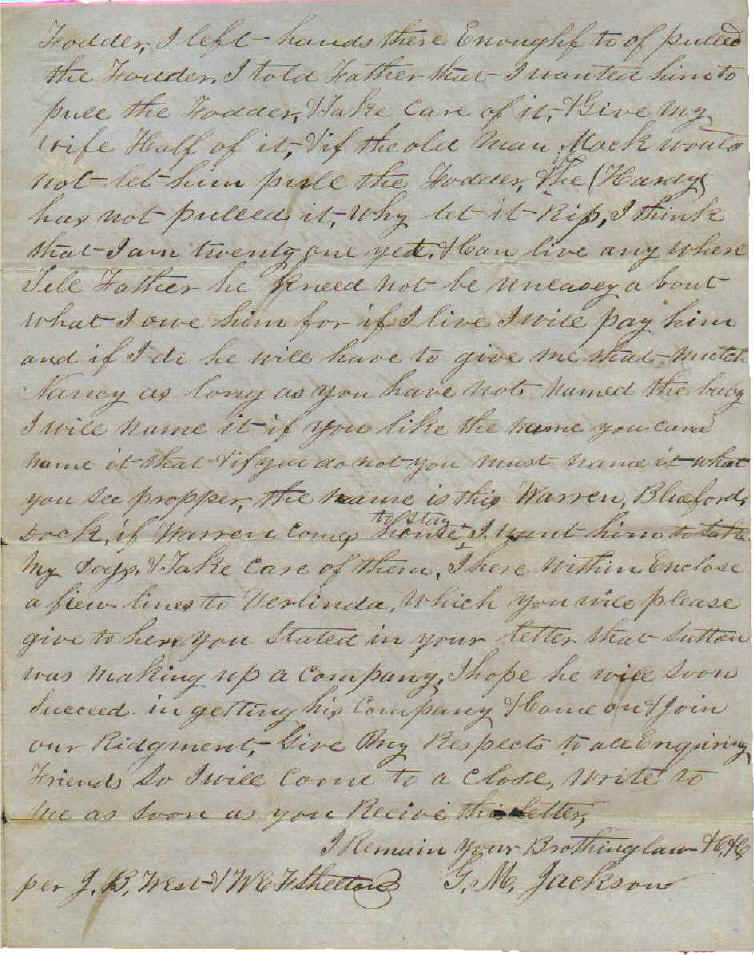 Fodder, I left hands there Enoughf to of pulled
the Fodder, I told Father that I wanted him to
pull the Fodder, & take care of it, & Give my
wife Half of it, & if the old man Mock would
not let him pull the Fodder, & he (Hardy)
has not pulled it, why let it Rip, I think
that I am twenty one yet, & Can live any where
Tell Father he kneed not be uneasey a bout
what I owe him for if I live I will pay him
and if I di he will have to give me that mutch
Nancy as long as you have not named the baby
I will name it if you like the name you can
name it that & if you do not you must name it what
you see propper, the name is this Warren, Bluford,
Dock, if Warren comes Home to stay, I want him to take
my dogs, & Take Care of them, I here within Enclose
a fiew lines to Verlinda, which you will please
give to her, you Stated in your letter that Sutton
was making up a company, I hope he will soon
Succeed in getting his Company & Come on & join
our Ridgment, Give My Respects to all Enquiring
Friends So I will Come to a Close, write to
me as soon as you Recive this letter,
I Remain your Brothinglaw &C, &C
per J. B. West & W C F G. M. Jackson